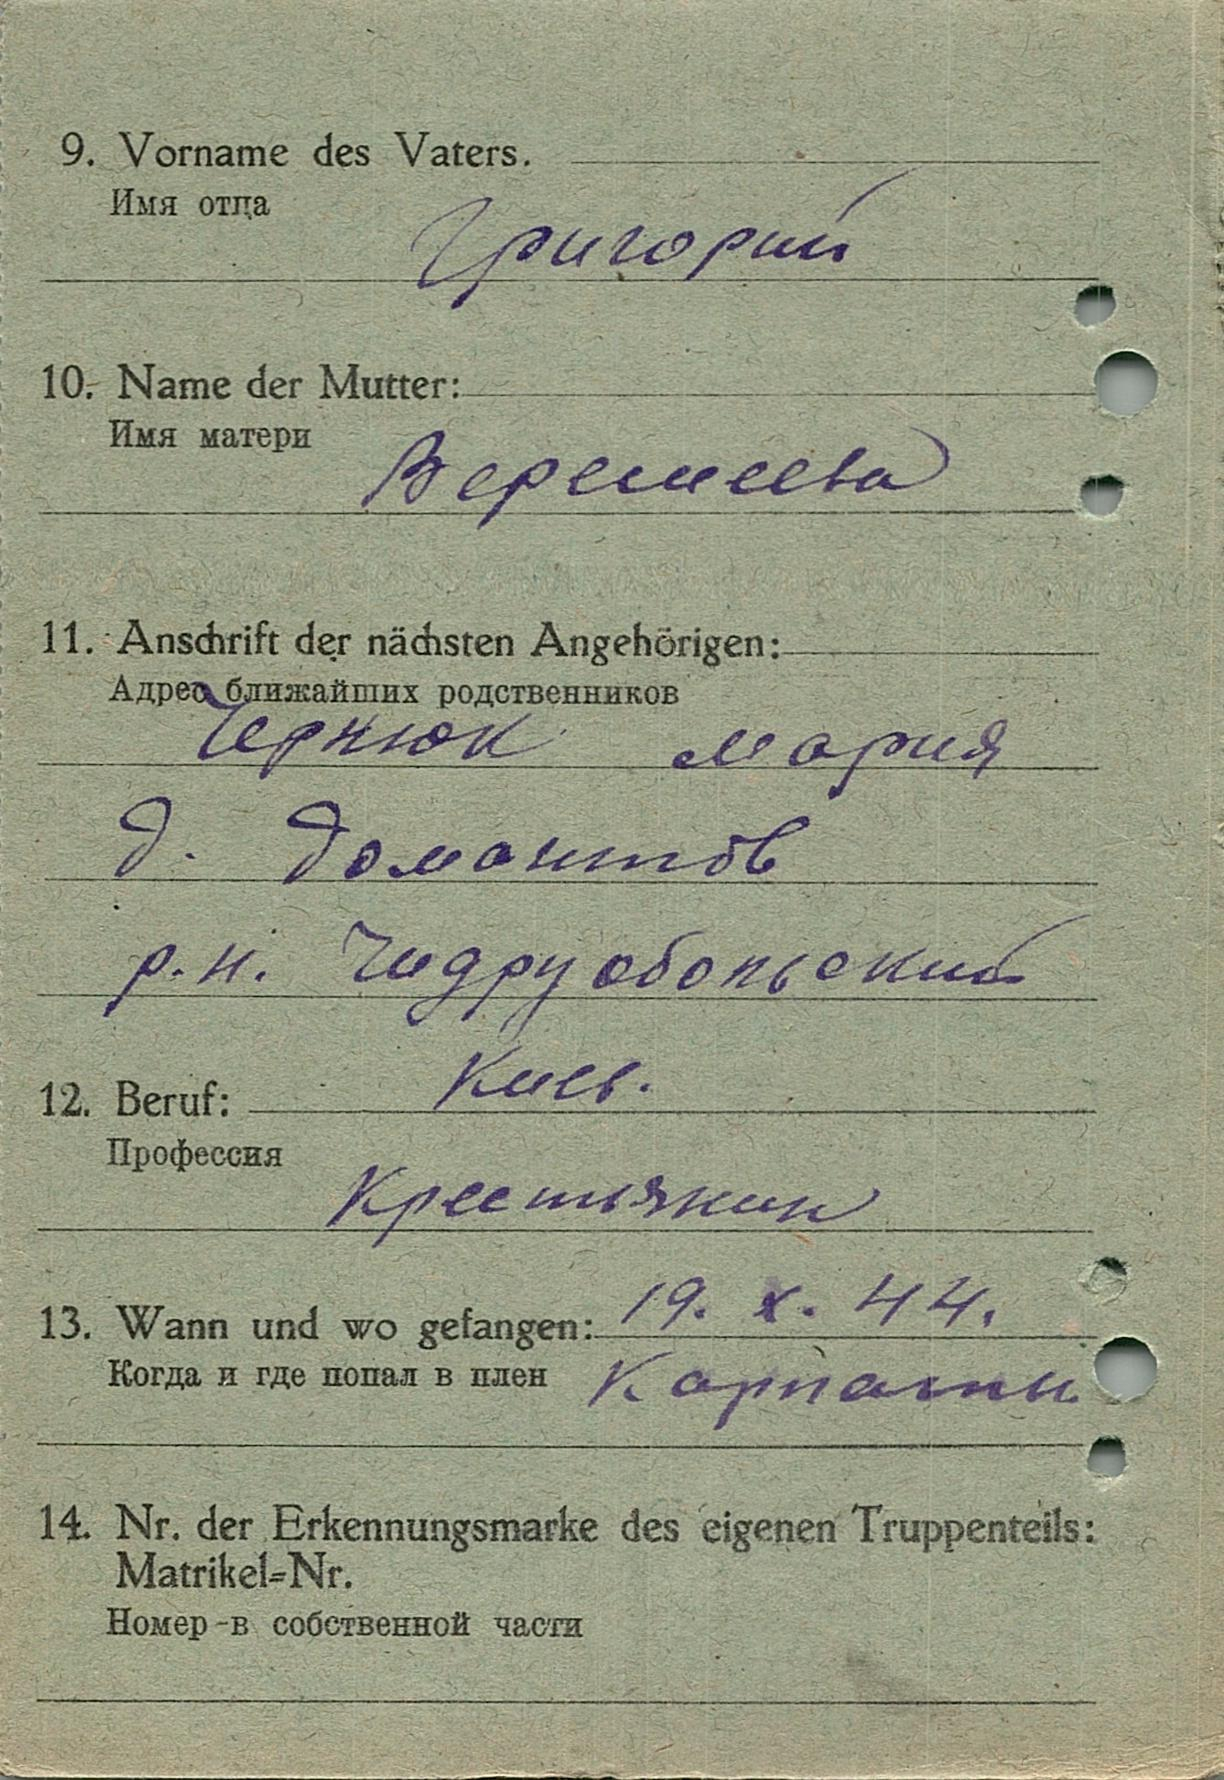 9. Vorname des Vaters.
Имя отца
Григорий
10. Name der Mutter:
Имя матери
Веремеева
11. Anschrift der nächsten Angehörigen:
Адрес ближайших родственников
Чернюк Мария
д. Домонтов
р.н.
Киев.
12. Beruf:
Профессия
Крестьянин
19. X. 44.
13. Wann und wo gefangen:
Когда и где попал в плен
Карпаты
14. Nr. der Erkennungsmarke des eigenen Truppenteils:
Matrikel-Nr.
Номер-в собственной части